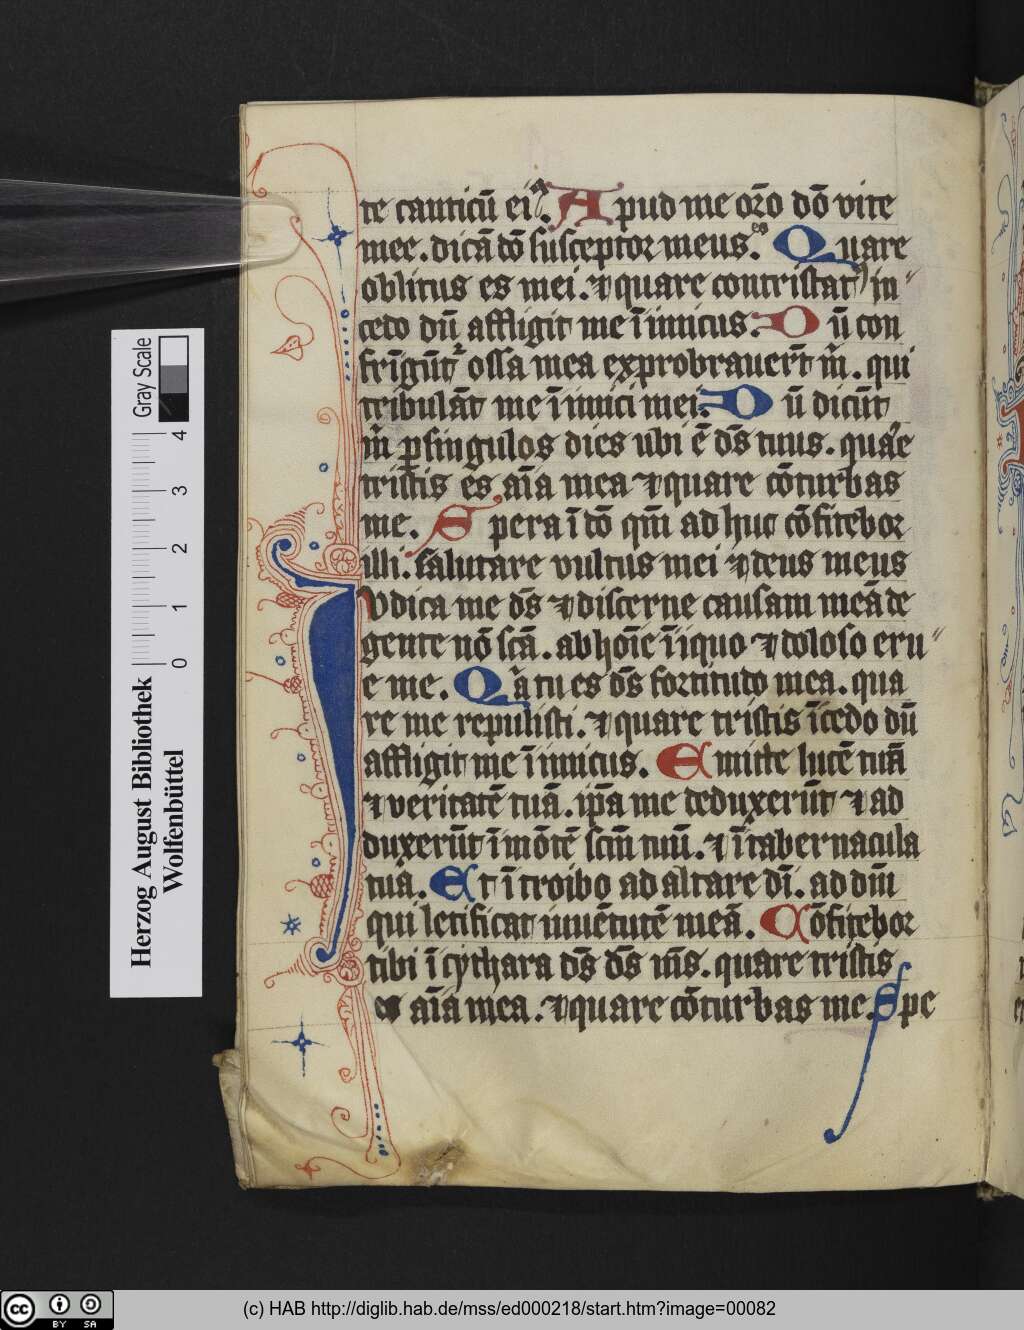 te canticū eiꝰ. Apud me oro dō vite
mee. dicā dō susceptor meus. es Quare
oblitus es mei. ⁊ quare contristatꝰ in″
cedo dū affligit me īimicus. Dū con
frīgūt ossa mea exprobrauerūt m̄. qui
tribulāt me īimici mei. Dū dicūt
m̄ ꝑ singulos dies ubi ē dꝰs tuus. quare
tristis es aīa mea ⁊ quare cōturbas
me. Spera ī dō qm̄ adhuc cōfitebor
illi. salutare vultus mei ⁊ deus meus
Iudica me dꝰs ⁊ discerne causam meā de
gente nō scā. ab hoīe īiquo ⁊ doloso eru″
e me. Qꝛa tu es dꝰs fortitudo mea. qua
re me repulisti. ⁊ quare tristis īcedo dū
affligit me īimicus. Emitte lucē tuā
⁊ veritatē tuā. ip̄a me deduxerūt ⁊ ad
duxerūt ī mōtē scm̄ tuū. ⁊ ī tabernacula
tua. Et ītroibo ad altare dī. ad dm̄
qui letificat iuuētutē meā. Cōfitebor
tibi ī cythara dꝰs dꝰs mꝰs. quare tristis
es aīa mea. ⁊ quare cōturbas me. Spe
Gray Scale
4
3
2
1
0
Herzog August Bibliothek
Wolfenbüttel
cc BY SA
(c) HAB http://diglib.hab.de/mss/ed000218/start.htm?image=00082